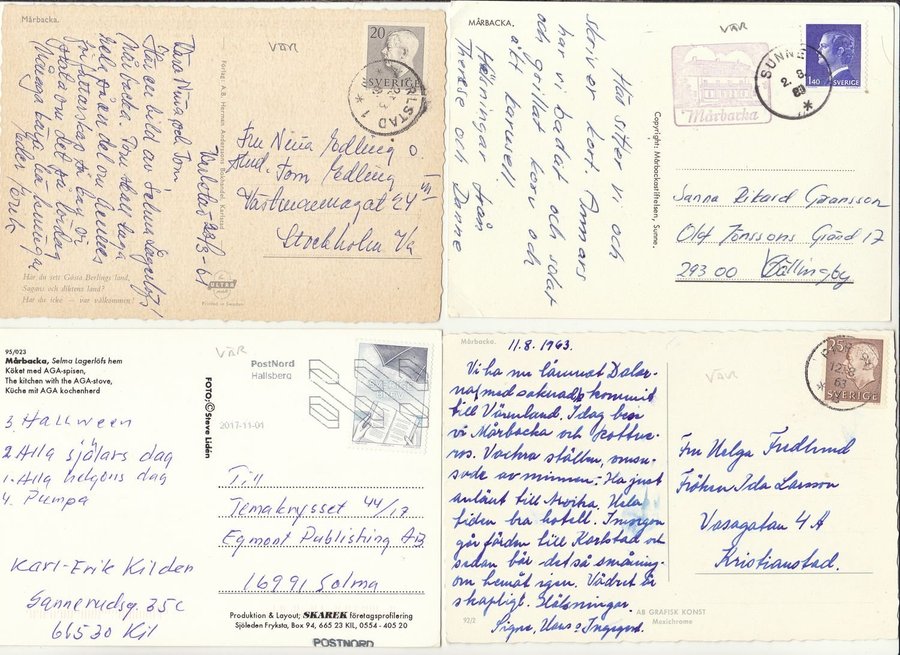 Mårbacka.
VÄR
20
SVERIGE
KARLSTAD 1
Karlstad 23/3-61
Kära Nina och Tom!
Här en bild av Selma Lagerlöfs
Mårbacka. Tom skall laga
författarskap
tala om det på lördag
Många kära hälsningar
Förlag: A.B. Herman Anderssons Bokhandel, Karlstad
Fru Nina Edling o.
Stud. Tom Edling
Västmannagat 24 VI
Stockholm Va
Har du sett Gösta Berlings land,
Sagans och diktens land?
Har du icke — var välkommen!
ULTRA
Printed in Sweden
MÅRBACKA.
VÄR
Mårbacka
SUNNE
2. 8. 83
1.40 SVERIGE
Här sitter vi och
skriver kort. Annars
har vi badat och solat
och grillat korv och
åkt karusell
Hälsningar från
Therese och Danne
Copyright: Mårbackastiftelsen, Sunne.
Sanna Rikard Göransson
Olof Jönssons Gränd 17
293 00
95/023
Mårbacka, Selma Lagerlöfs hem
Köket med AGA-spisen,
The kitchen with the AGA-stove,
Küche mit AGA kochenherd
VÄR
PostNord
Hallsberg
2017-11-01
FOTO: © Steve Lidén
3 Hallween
2 Alla själars dag
1. Alla helgons dag
4. Pumpa
Karl-Erik Kilden
Sannerudsg. 35C
66530 Kil
Till
Temakrysset 44/17
Egmont Publishing AB
16991 Solna
Produktion & Layout; SKAREK företagsprofilering
Sjöleden Fryksta, Box 94, 665 23 KIL, 0554 - 405 20
POSTNORD
Mårbacka.
VÄR
25
SVERIGE
12.8 63
11.8.1963.
Vi ha nu lämnat Dalar-
na, med saknad, o kommit
till Värmland. I dag bese
vi Mårbacka och Rottne-
ros. Vackra ställen, omsu-
sade av minnen. Ha just
anlänt till Arvika. Hela
tiden bra hotell. Imorgon
går färden till Karlstad och
sedan bär det så småning-
om hemåt igen. Vädret är
skapligt. Hälsningar.
Signe, Hans o Ingegerd.
Fru Helga Fredlund
Fröken Ida Larsson
Vasagatan 4 A
Kristianstad.
92/2
AB GRAFISK KONST
Mexichrome